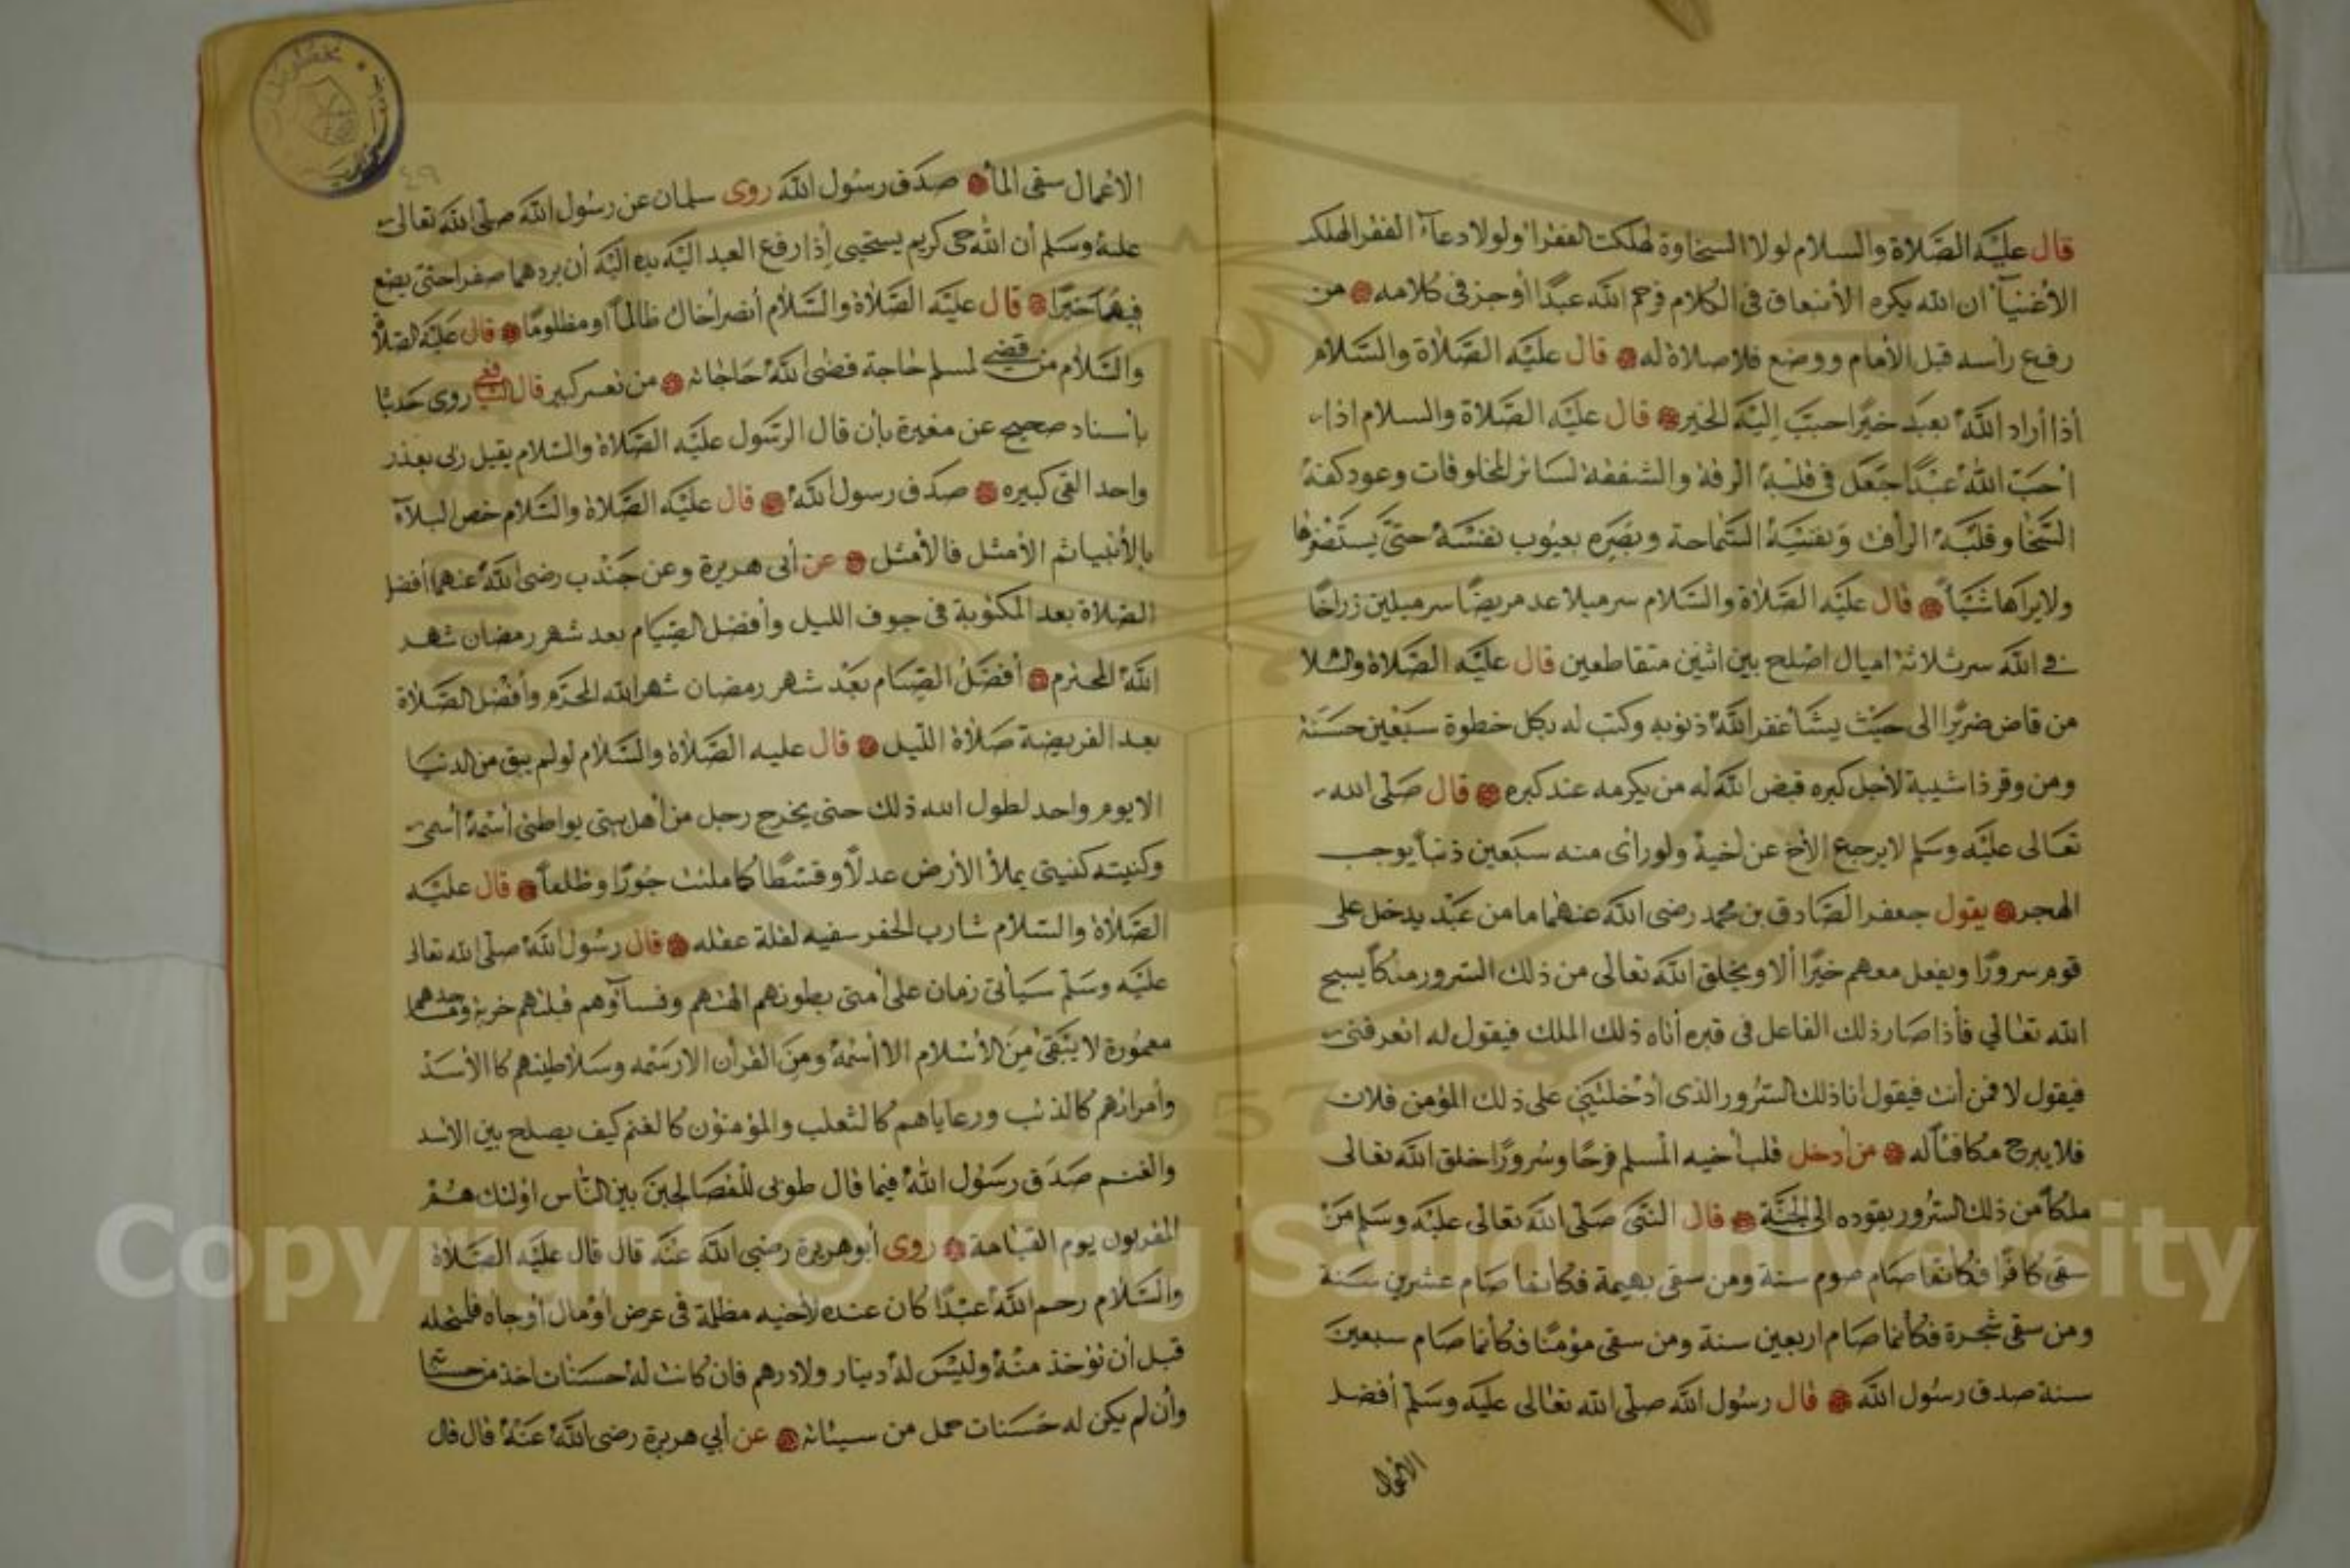 قال عليه الصلاة والسلام لولا السخاوة لهلكت الفقرا ولولا دعاء الفقر الهلك
الأغنياء ان الله يكره الأنبعاق في الكلام فرحم الله عبدًا أوجز في كلامه من
رفع رأسه قبل الأمام ووضع فلا صلاة له قال عليه الصلاة والسلام
أذا أراد الله بعبد خيرًا حبب إليه الخير قال عليه الصلاة والسلام اذا
احب الله عبدًا جعل في قلبه الرفة والشفقة لسائر المخلوقات وعود كفه
السخا وقلبه الرأفة ونفسه السماحة وبصره بعيوب نفسه حتى يستصغرها
ولا يراها شيأ قال عليه الصلاة والسلام سر ميلا عد مريضًا سر ميلين زر اخًا
في الله سر ثلاثة اميال اصلح بين اثنين متقاطعين قال عليه الصلاة والسلا
من قاض ضريرًا الى حيث يشأ غفر الله ذنوبه وكتب له بكل خطوة سبعين حسنة
ومن وقر ذا شيبة لأجل كبره قبض الله له من يكرمه عند كبره قال صلى الله
تعالى عليه وسلم لا يرجع الأخ عن اخيه ولو رأى منه سبعين ذنبا يوجب
الهجر يقول جعفر الصادق بن محمد رضى الله عنهما ما من عبد يدخل على
قوم سرورًا ويفعل معهم خيرًا ألا ويخلق الله تعالى من ذلك السرور ملكاً يسبح
الله تعالي فأذا صار ذلك الفاعل في قبره أتاه ذلك الملك فيقول له اتعرفني
فيقول لا فمن أنت فيقول انا ذلك السرور الذى أدخلتني على ذلك المؤمن فلان
فلا يبرح مكافئاً له من أدخل قلب أخيه المسلم فرحًا وسرورًا خلق الله تعالى
ملكاً من ذلك السرور يقوده الى الجنة قال النبى صلى الله تعالى عليه وسلم من
سقى كافرًا فكانما صام صوم سنة ومن سقى بهيمة فكانما صام عشرين سنة
ومن سقى شجرة فكأنما صام اربعين سنة ومن سقى مؤمنًا فكأنما صام سبعين
سنة صدق رسول الله قال رسول الله صلى الله تعالى عليه وسلم أفضل
الاعمال
الاعمال سقى المأ صدق رسول الله روى سلمان عن رسول الله صلى الله تعالى
عليه وسلم أن الله حى كريم يستحيى إذا رفع العبد اليه يديه اليه أن يردهما صفرا حتى يضع
فيهما خيرًا قال عليه الصلاة والسلام أنصر أخاك ظالماً او مظلومًا قال عليه الصلاة
والسلام من قضى لمسلم حاجة قضى الله حاجاته من تفسر كبير قال روى حديثا
بأسناد صحيح عن مغيرة بأن قال الرسول عليه الصلاة والسلام يقبل ربى بعذر
واحد القى كبيره صدق رسول الله قال عليه الصلاة والسلام خص البلاء
بالأنبيا ثم الأمثل فالأمثل عن أبى هريرة وعن جندب رضى الله عنهما أفضل
الصلاة بعد المكتوبة في جوف الليل وأفضل الصيام بعد شهر رمضان شهر
الله المحرم أفضل الصيام بعد شهر رمضان شهر الله المحرم وأفضل الصلاة
بعد الفريضة صلاة الليل قال عليه الصلاة والسلام لو لم يبق من الدنيا
الا يوم واحد لطول الله ذلك حتى يخرج رجل من أهل بيتى يواطئ أسمه أسمى
وكنيته كنيتي يملأ الأرض عدلاً وقسطًا كا ملئت جورًا وظلماً قال عليه
الصلاة والسلام شارب الخمر سفيه لقلة عقله قال رسول الله صلى الله تعالى
عليه وسلم سيأتى زمان على أمتى بطونهم الههم ونسآؤهم قبلتهم خربة ومساجدهم
معمورة لا يبقى من الأسلام الا أسمه ومن القرأن الا رسمه وسلاطينهم كا الأسد
وأمرائهم كالذئب ورعاياهم كا لثعلب والمؤمنون كا لغنم كيف يصلح بين الأسد
والغنم صدق رسول الله فيما قال طوبى للمصالحين بين الناس اولئك هم
المقربون يوم القيامة روى أبو هريرة رضي الله عنه قال قال عليه الصلاة
والسلام رحم الله عبدًا كان عنده لأخيه مظلمة في عرض أو مال أو جاه
قبل ان تؤخذ منه وليس له دينار ولا درهم فان كانت له حسنات اخذ من حسناته
وأن لم يكن له حسنات حمل من سيئاته عن أبي هريرة رضى الله عنه قال قال